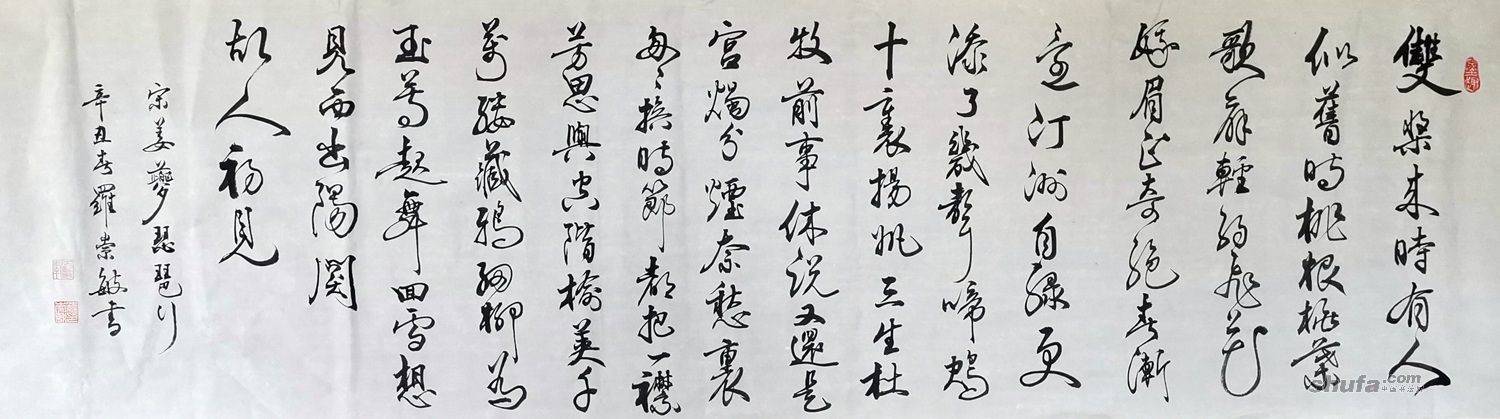 雙槳来時有人
似舊時桃根桃葉
歌扇輕約飛花
蛾眉正奇絕春漸
遠汀洲自綠更
添了幾聲啼鴂
十裏揚州三生杜
牧前事休說又還是
宮燭分煙奈愁裏
匆〻換時節都把一襟
芳思與空階榆莢千
萬縷藏鴉細柳為
玉尊起舞回雪想
見西出陽関
故人初見
宋姜夔琵琶行
辛丑春羅崇敏書
shufa.com